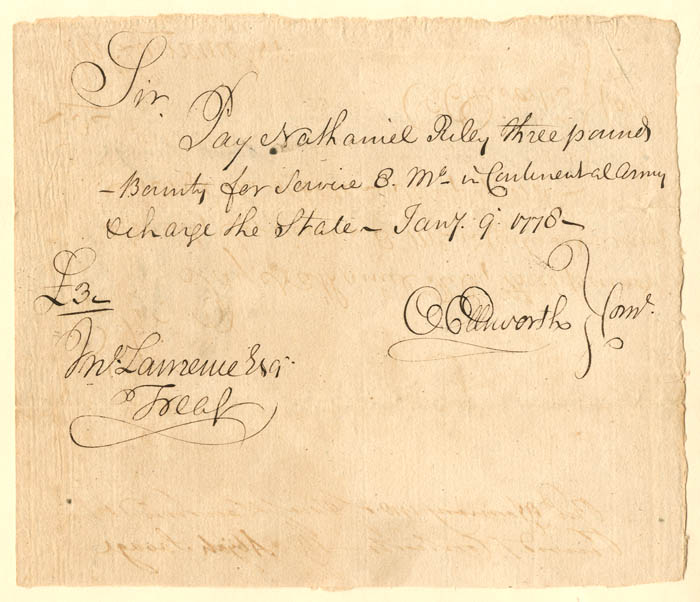 Sir
Pay Nathaniel Riley three pounds
- Bounty for Service 8. Mo. in Continental Army
& charge the State - Jany. 9. 1778 -
£3 -
O Ellsworth } Comte.
Jno. Lawrence Esqr.
Treasr